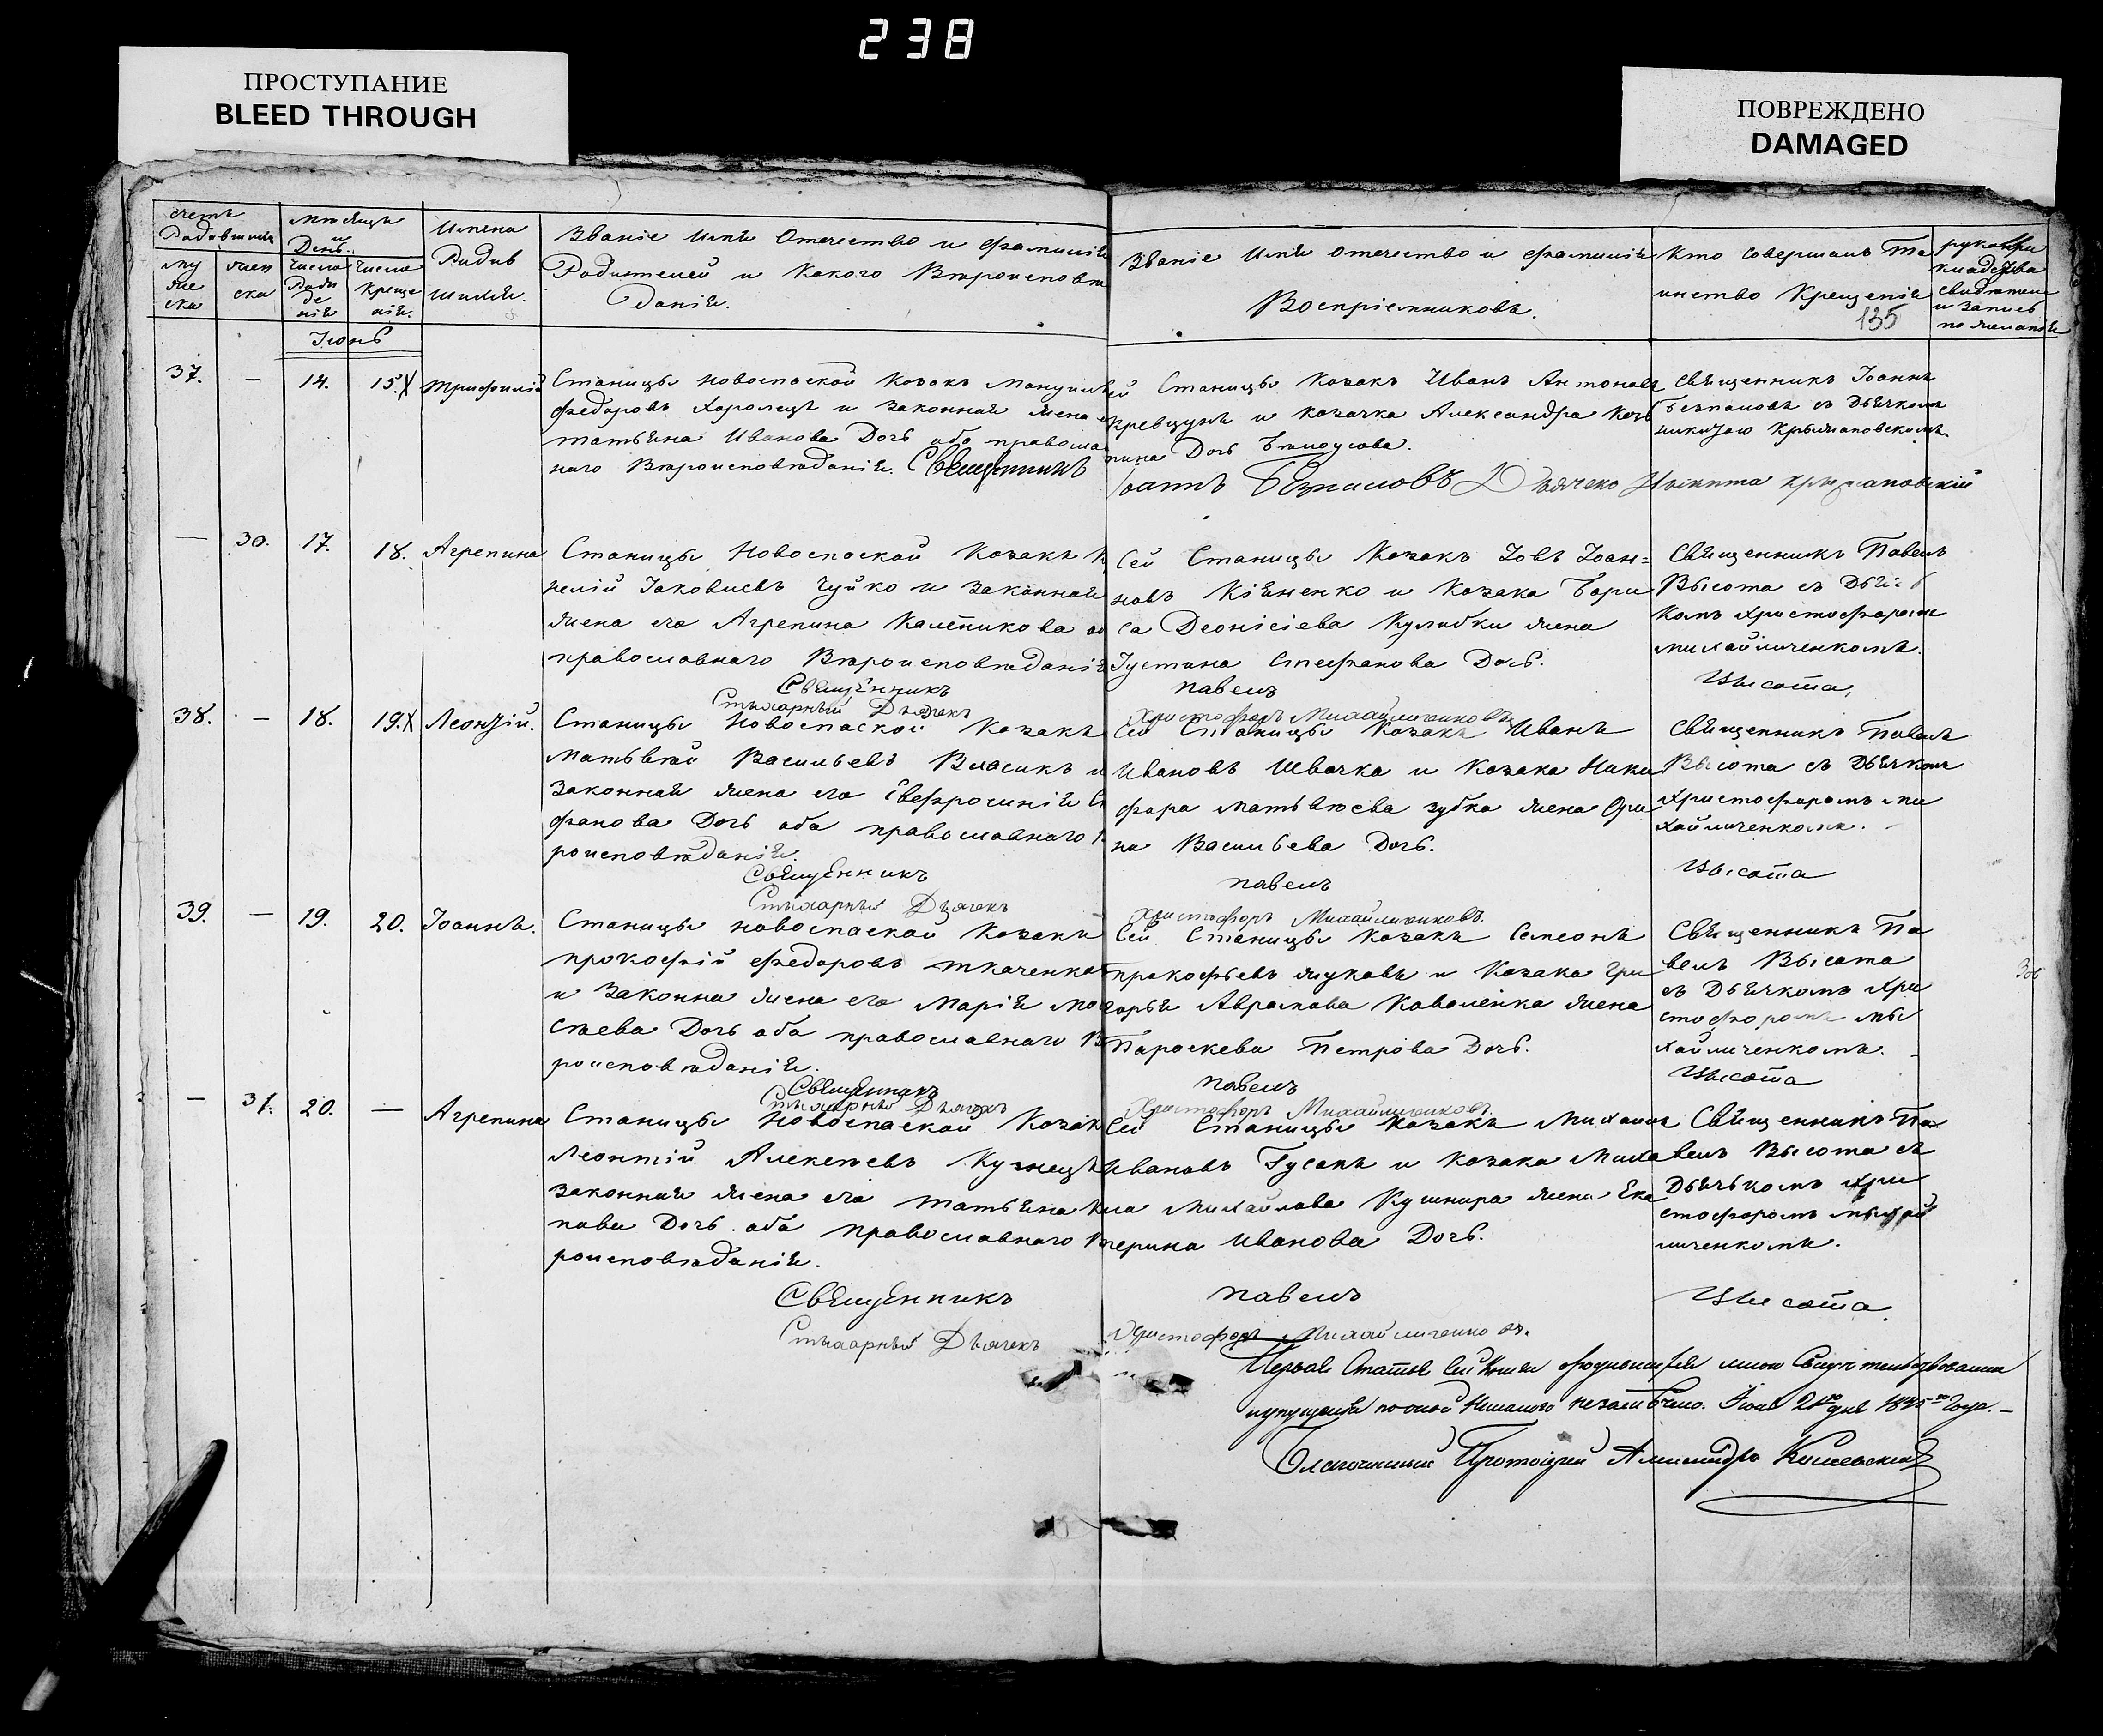 238
ПРОСТУПАНИЕ
BLEED THROUGH
ПОВРЕЖДЕНО
DAMAGED
счетъ
мѣсяцъ
и
День
Имена
Родив
шихся.
му
же
ска
жен
ска
Число
Рожд
де
нія
Число
креще
нія.
Званіе Имя Отечество и фамилія
Родителей и Какого Вѣроисповѣ
данія.
Званіе Имя отечество и фамилія
Воспріемниковъ.
Кто совершалъ Та
инство Крещенія
135
рукопри
кладства
свидѣтел
и запись
по желанію
Іюнь
37. — 14. 15. Х Трифилій
Станицы новоспаской Козакъ Мануилъ
федоровъ Харолецъ и законная жена
татьяна Иванова Дочь оба правосла
наго Вѣроисповѣданія. Священникъ
ей Станицы Козакъ Иванъ Антоновъ
кревцунъ и козачка Александра
Дочь Бѣлоусова.
Іоаннъ Безпаловъ Дьячекъ Никита крыжановскій
Священникъ Іоаннъ
Безпаловъ съ Дьячкомъ
никитою Крыжановскимъ.
— 30. 17. 18. Агрепина
Станицы Новоспаской Козакъ К
нелій Іаковлевъ Чуйко и законная
жена его Агрепина Калѣникова об
православнаго Вѣроисповѣданія
Священникъ
Стихарный Дьячекъ
Сей Станицы Козакъ Іовъ Іоан=
новъ Кіяненко и Козака Бори
са Деонісіева Кулибки жена
Іустина Стефанова Дочь.
павелъ
Христофоръ Михайличенковъ
Священникъ Павелъ
Высота съ Дьяч
комъ Христофоромъ
михайличенкомъ.
Высота
38. — 18. 19. Х Леонтій.
Станицы Новоспаской Козакъ
Матьвѣй Васильевъ Власикъ и
законная жена его Евфросинія С
фанова Дочь оба православнаго
роисповѣданія.
Священникъ
Стихарный Дьячекъ
Сей Станицы Козакъ Иванъ
Ивановъ Швачка и Козака Ники
фора матьвѣева зубка жена Ори
на Васильева Дочь.
павелъ
Христофоръ Михайличенковъ
Священникъ Павелъ
Высота съ Дьячком
Христофоромъ ми
хайличенкомъ.
Высота
39. — 19. 20. Іоаннъ.
Станицы новоспаской Козакъ
прокофій федоровъ ткаченко
и Законна жена его Марія Мо
сѣева Дочь оба православнаго В
роисповѣданія.
Священникъ
Стихарный Дьячекъ
Сей Станицы Козакъ Семеонъ
прокофьевъ жуковъ и Козака Гри
горья Аврамова Коваленка жена
Параскева Петрова Дочь.
павелъ
Христофоръ Михайличенковъ
Священникъ Па
велъ Высота
съ Дьячкомъ Хри
стофоромъ ми
хайличенкомъ.
Высота
— 31. 20. — Агрепина
Станицы Новоспаской Козак
Леонтій Алексѣевъ Кузнецъ
законная жена его татьяна
пова Дочь оба православнаго В
роисповѣданія.
Священникъ
Стихарный Дьячекъ
Сей Станицы Козакъ Михаилъ
Ивановъ Гусакъ и Козака Миха
ла Михайлова Кушнира жена Ека
терина Иванова Дочь.
павелъ
Христофоръ Михайличенковъ.
Священникъ Па
велъ Высота съ
Дьячькомъ Хри
стофоромъ михай
личенкомъ.
Высота
Первая Статья сей Книги мною Свидѣтельствована
Іюня дня года.
Благочинный Протоіерей Александръ